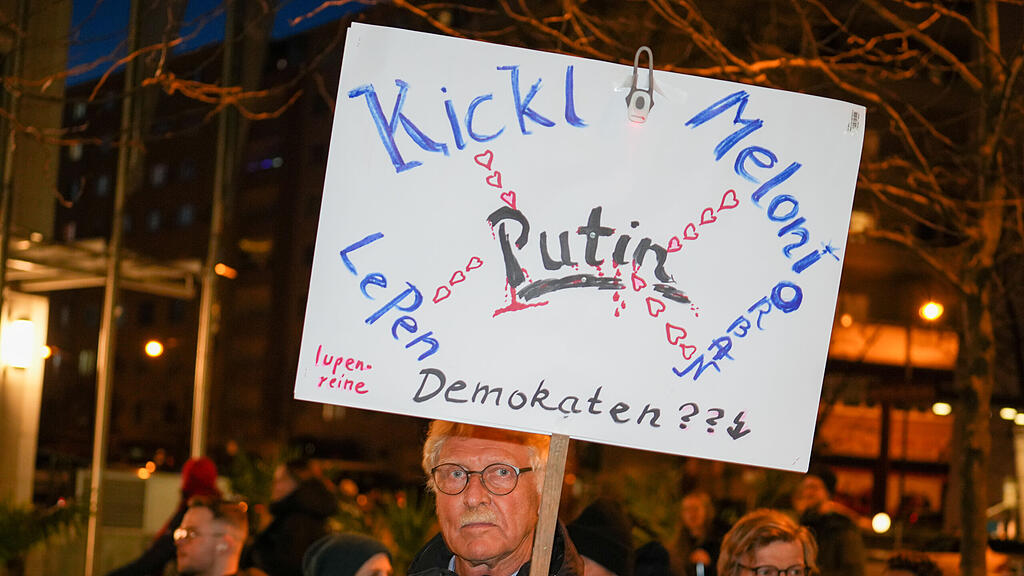 Kickl
Meloni
Putin
LePen
ORBAN
lupen-
reine
Demokaten ??